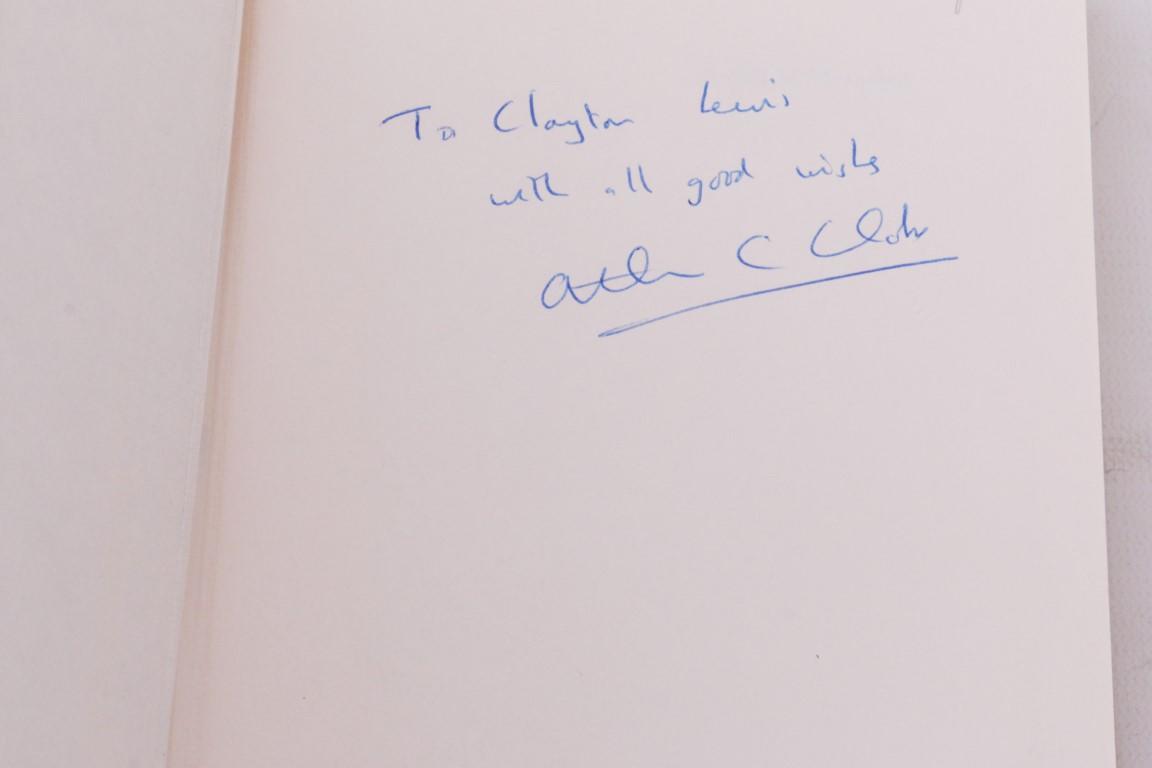 To Clayton Lewis
with all good wishes
Arthur C Clarke